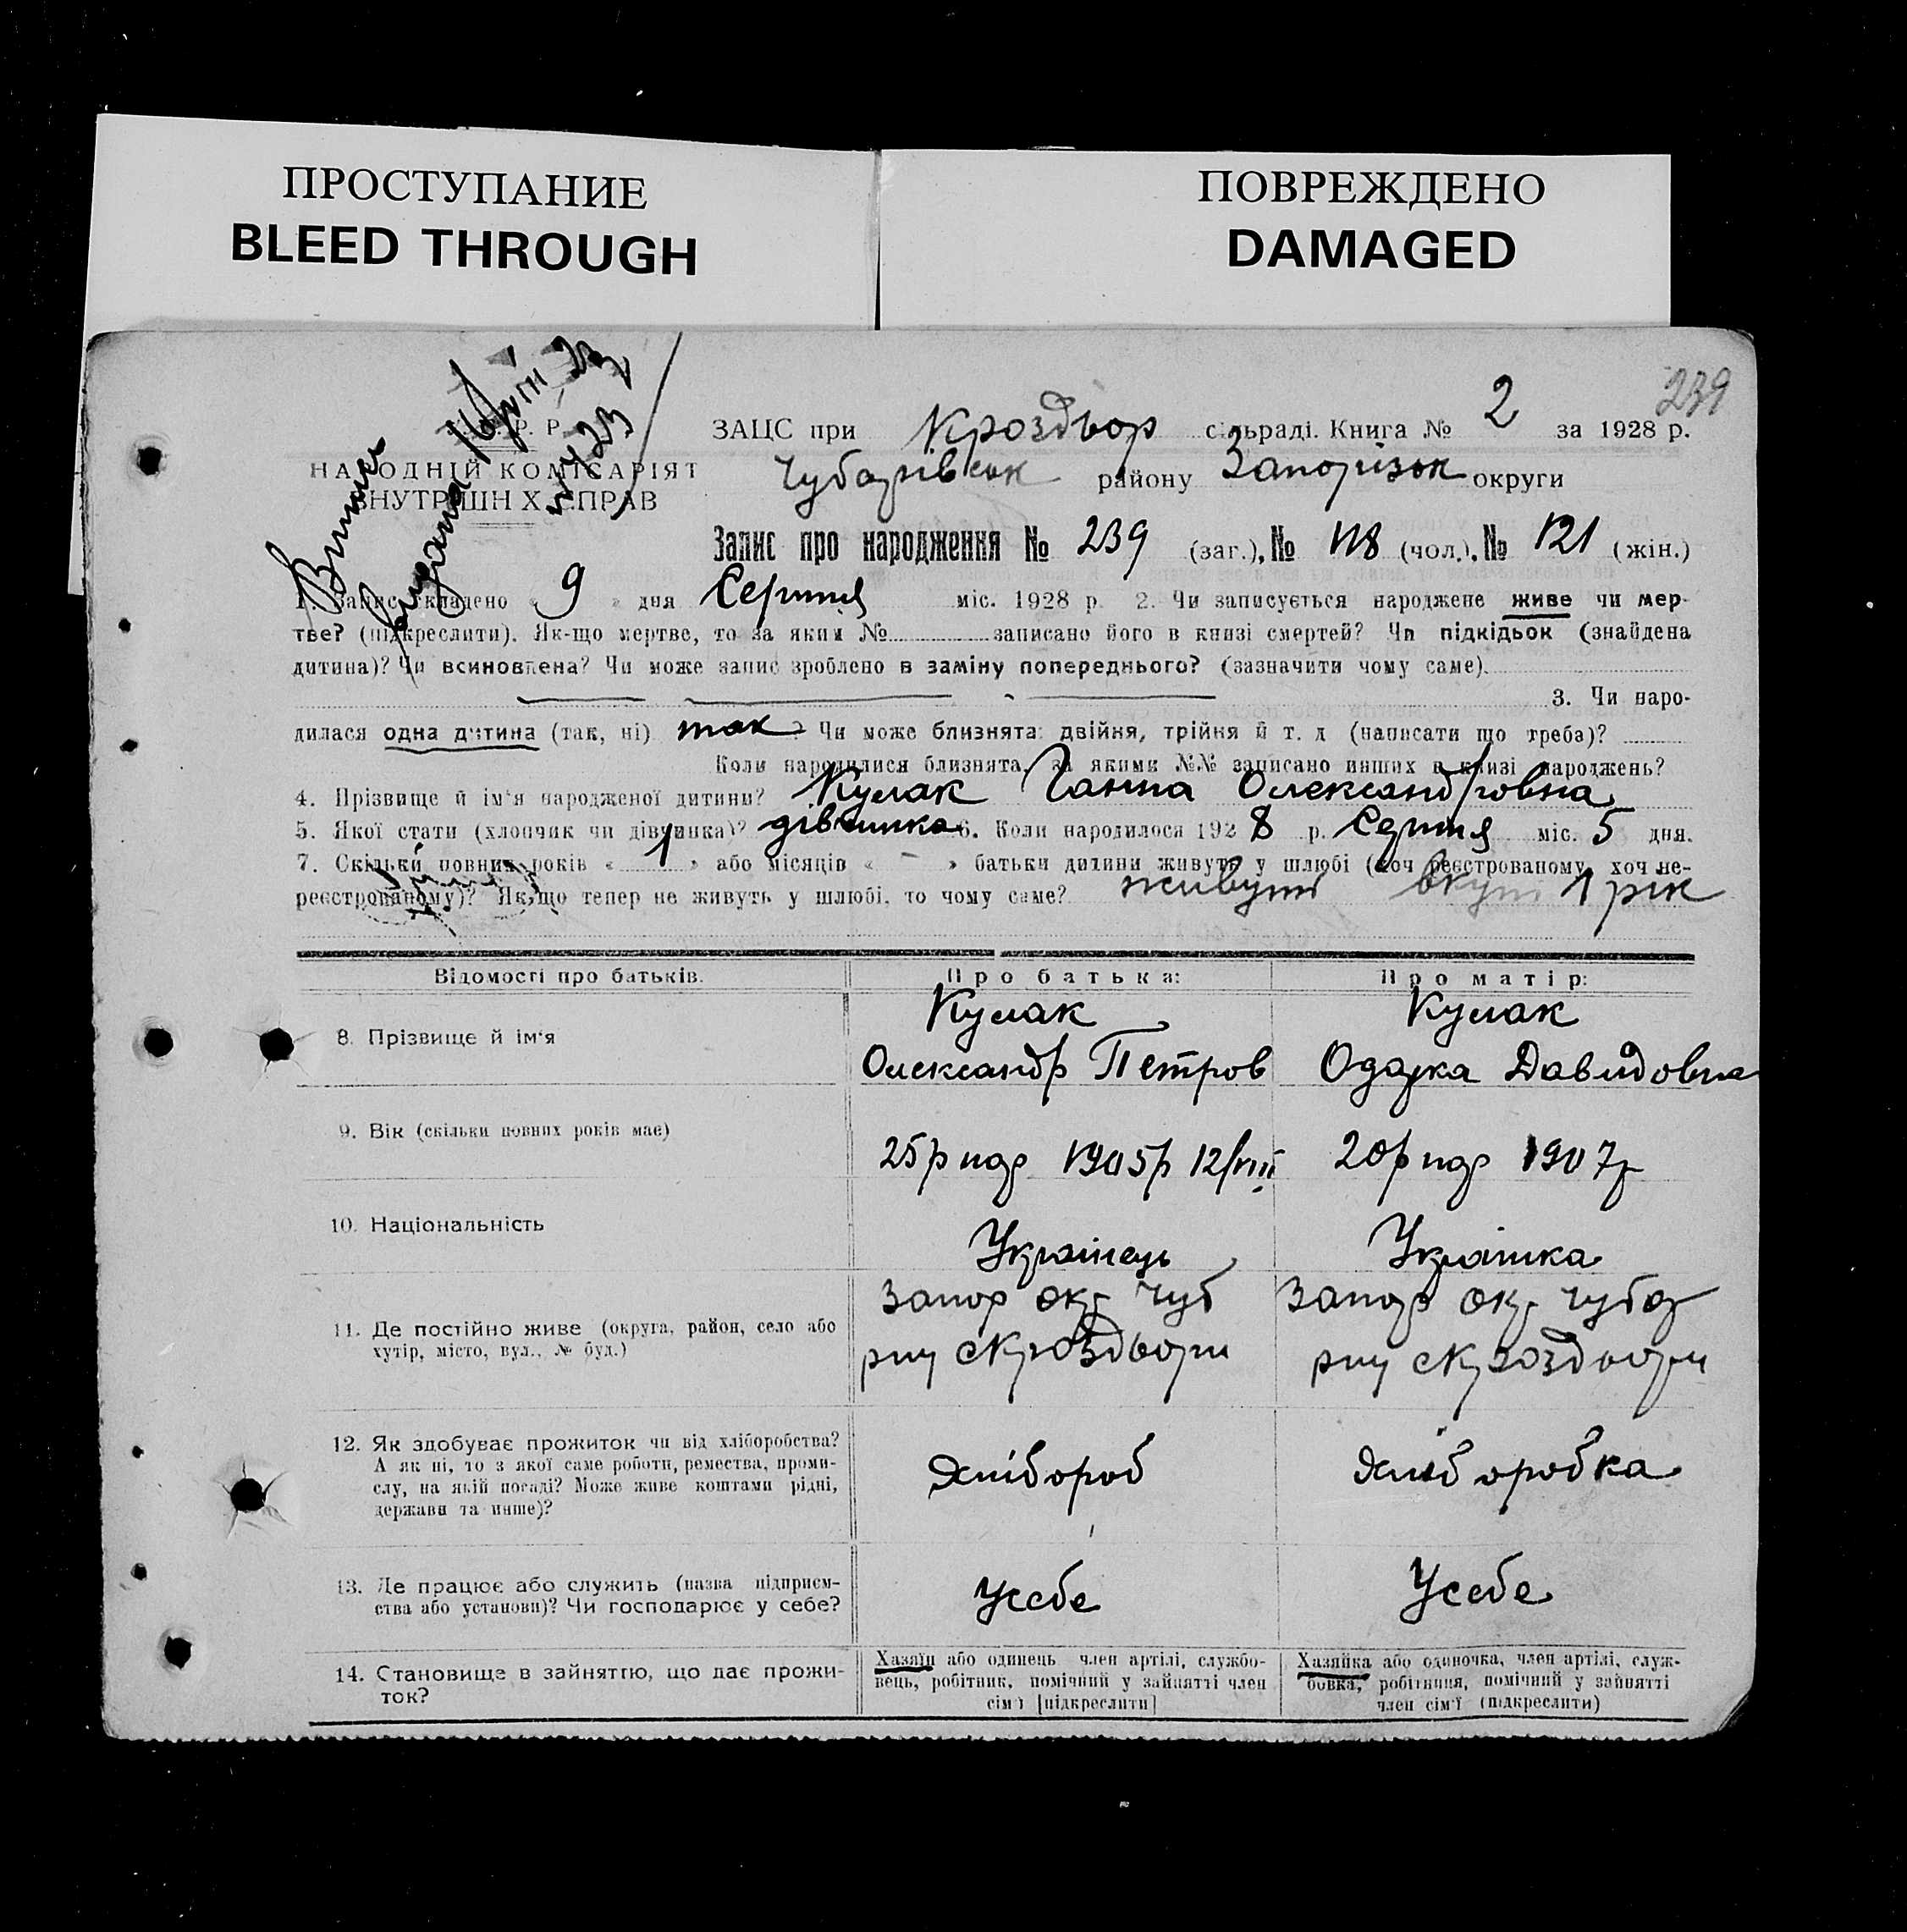 ПРОСТУПАНИЕ
BLEED THROUGH
ПОВРЕЖДЕНО
DAMAGED
239
НАРОДНІЙ КОМІСАРІЯТ
ВНУТРІШНІХ СПРАВ
ЗАЦС при Кроздвор сільраді. Книга № 2 за 1928 р.
Чубарівськ району Запорізок округи
Запис про народження № 239 (заг.), № 118 (чол.), № 121 (жін.)
1. Запис складено « 9 » дня Серпня міс. 1928 р. 2. Чи записується народжене живе чи мер-
тве? (підкреслити). Як-що мертве, то за яким № записано його в книзі смертей? Чи підкідьок (знайдена
дитина)? Чи всиновлена? Чи може запис зроблено в заміну попереднього? (зазначити чому саме).
3. Чи наро-
дилася одна дитина (так, ні) так ? Чи може близнята: двійня, трійня й т. д (написати що треба)?
Коли народилися близнята, за якими №№ записано инших в книзі народжень?
4. Прізвище й ім'я народженої дитини? Кулак Ганна Олександровна
5. Якої стати (хлопчик чи дівчинка)? дівчинка 6. Коли народилося 1928 р. Серпня міс. 5 дня.
7. Скільки повних років « 1 » або місяців « — » батьки дитини живуть у шлюбі (хоч реєстрованому, хоч не-
реєстрованому)? Як-що тепер не живуть у шлюбі, то чому саме? живуть вкуп 1 рік
Відомості про батьків. Про батька: Про матір:
8. Прізвище й ім'я
Кулак
Олександр Петров
Кулак
Одарка Давидовна
9. Вік (скільки повних років має)
25р нар 1905р 12/VIII
20р нар 1907р
10. Національність
Українець
Українка
11. Де постійно живе (округа, район, село або
хутір, місто, вул., № буд.)
Запор окр Чуб
рну с Кроздвори
Запор окр Чубар
рну с Кроздвори
12. Як здобуває прожиток чи від хліборобства?
А як ні, то з якої саме роботи, ремества, проми-
слу, на якій посаді? Може живе коштами рідні,
держави та инше)?
Хлібороб
Хліборобка
13. Де працює або служить (назва підприєм-
ства або установи)? Чи господарює у себе?
Усебе
Усебе
14. Становище в зайняттю, що дає прожи-
ток?
Хазяїн або одинець член артілі, службо-
вець, робітник, помічний у зайнятті член
сім'ї [підкреслити]
Хазяйка або одиночка, член артілі, служ-
бовка, робітниця, помічний у зайнятті
член сім'ї (підкреслити)